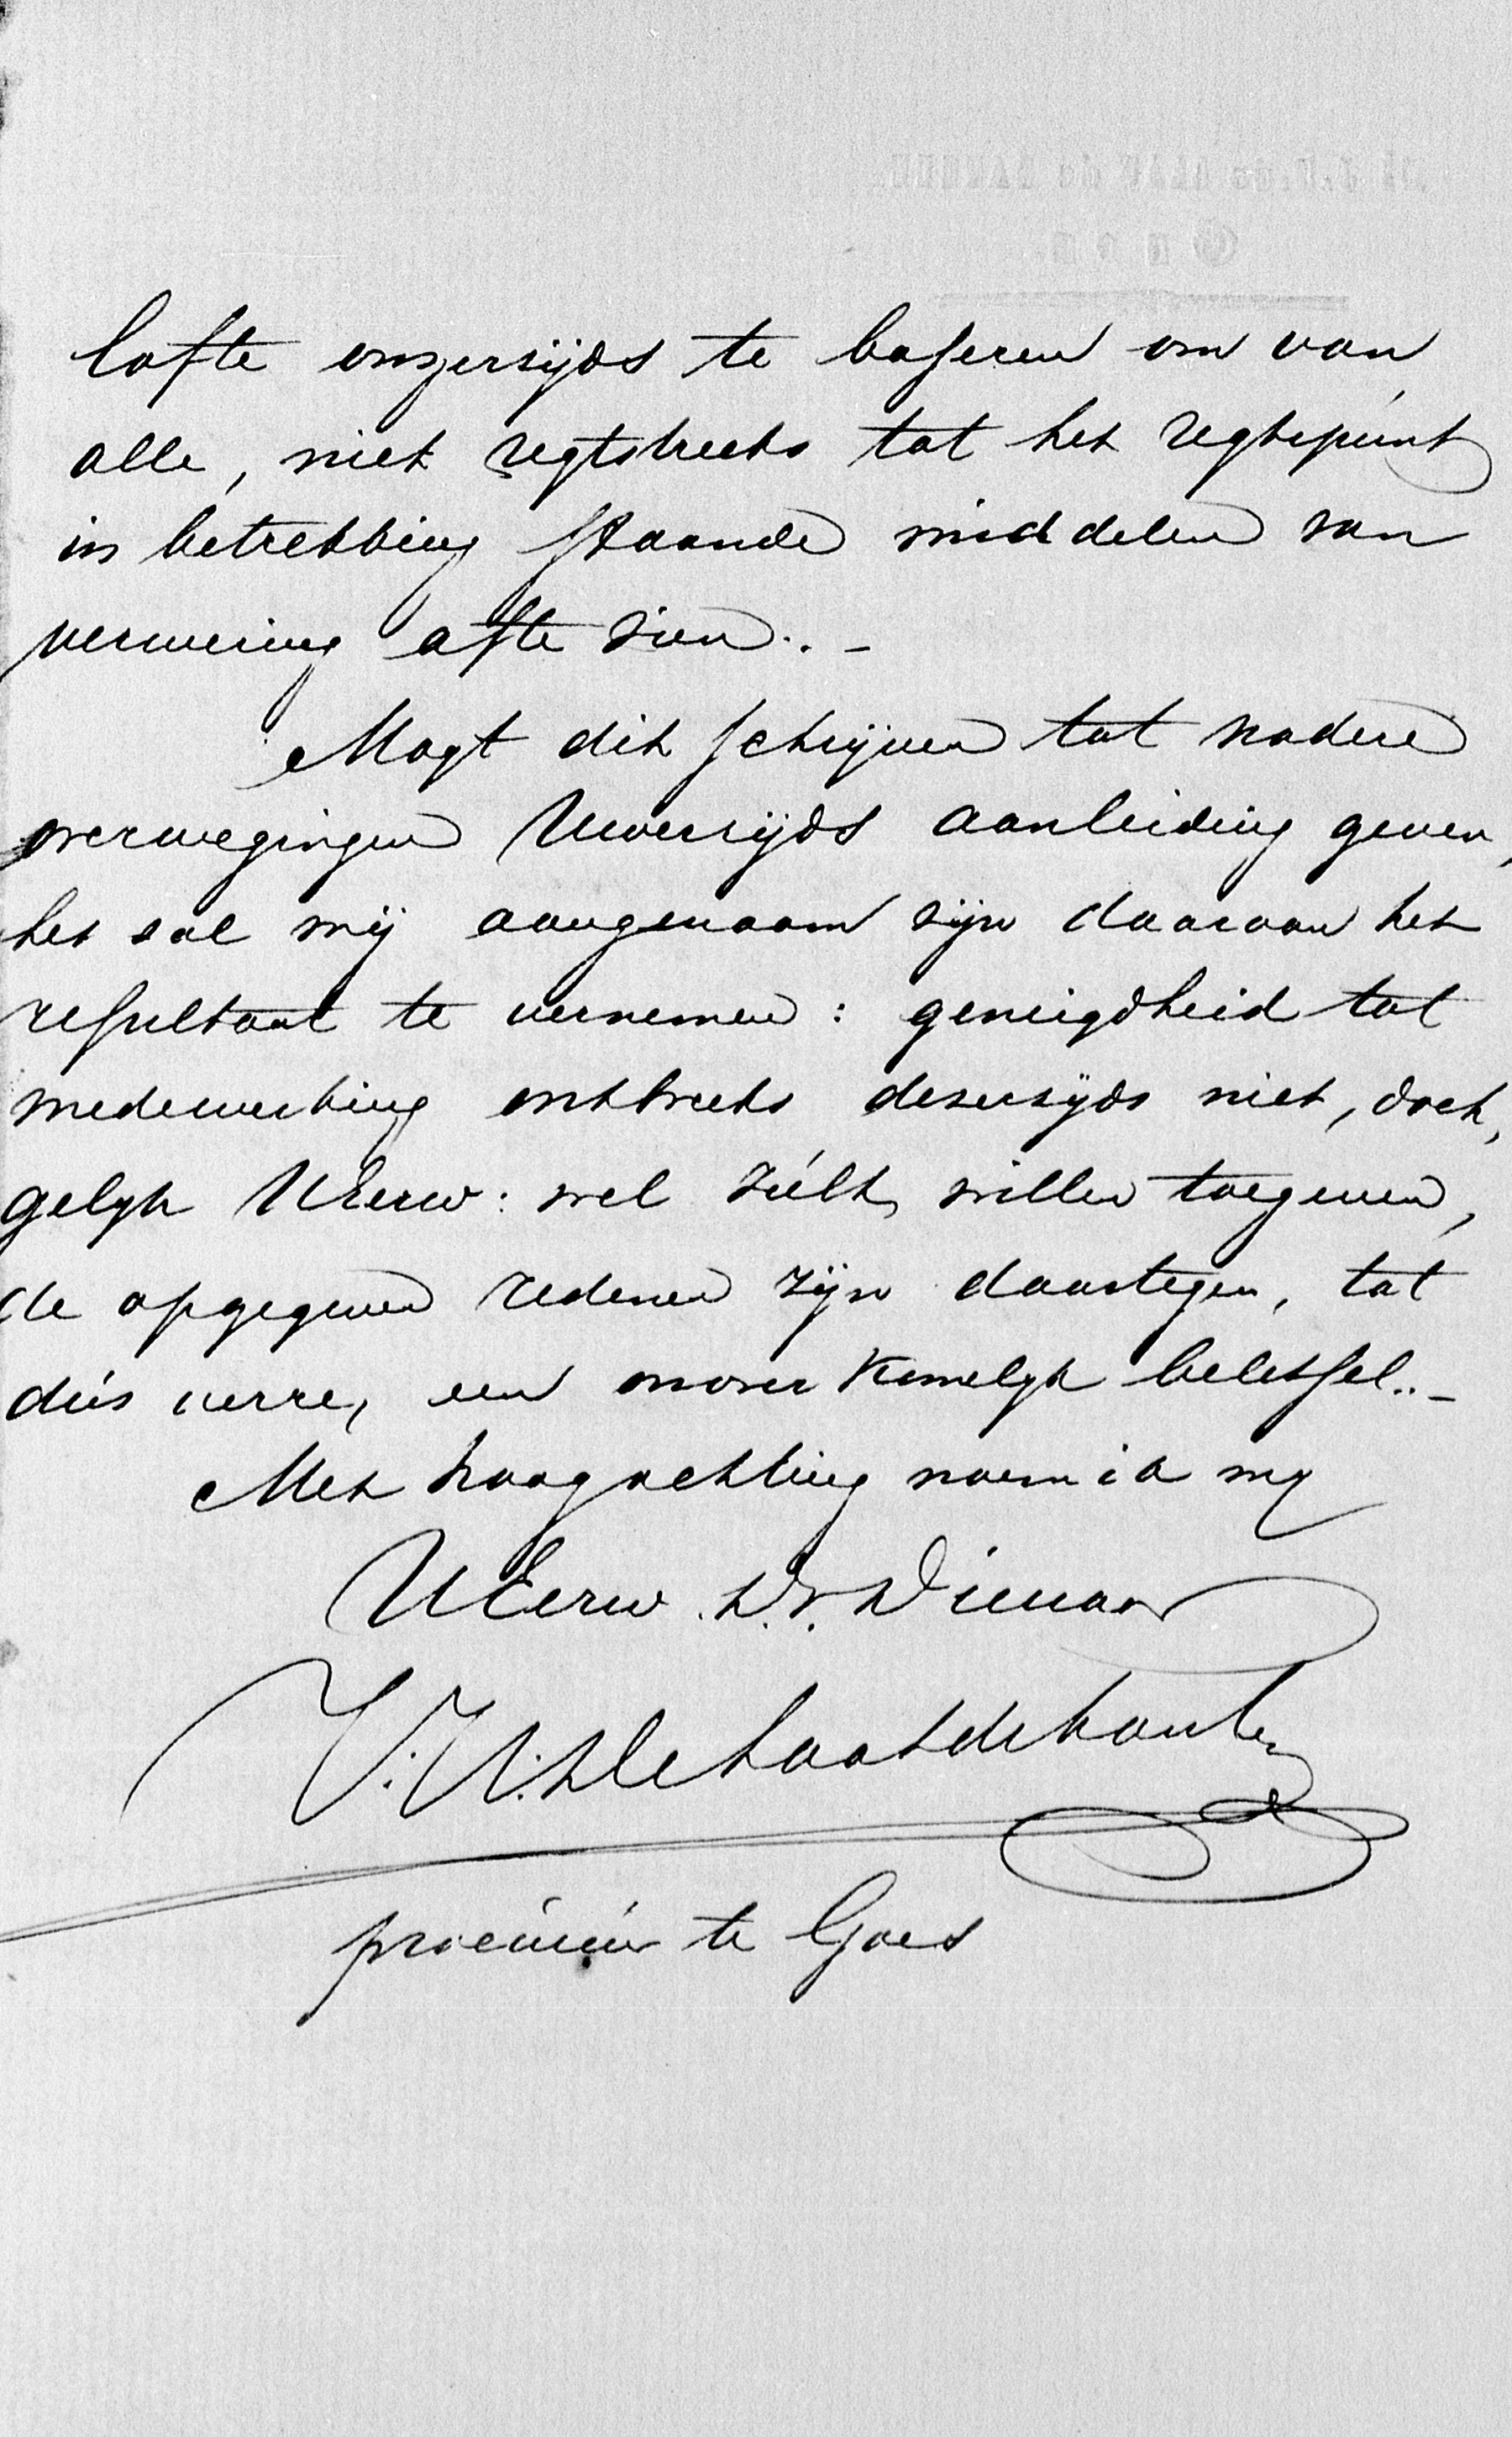 lofte onzerzijds te baseren om van
alle, niet regtstreeks tot het regtspunt
in betrekking staande middelen van
verwering afte zien. -
Mogt dit schrijven tot nadere
overwegingen Uwerzijds aanleiding geven,
het zal mij aangenaam zijn daarvan het
resultaat te vernemen: geneigdheid tot
medewerking ontbreekt dezerzijds niet, doch,
gelijk UEerw: wel zult willen toegeven,
de opgegeven redenen zijn daartegen, tot
dus verre, een onover komelijk beletsel. -
Met hoogachting noem ik mij
UEerw. Dv. Dienaar
procureur te Goes